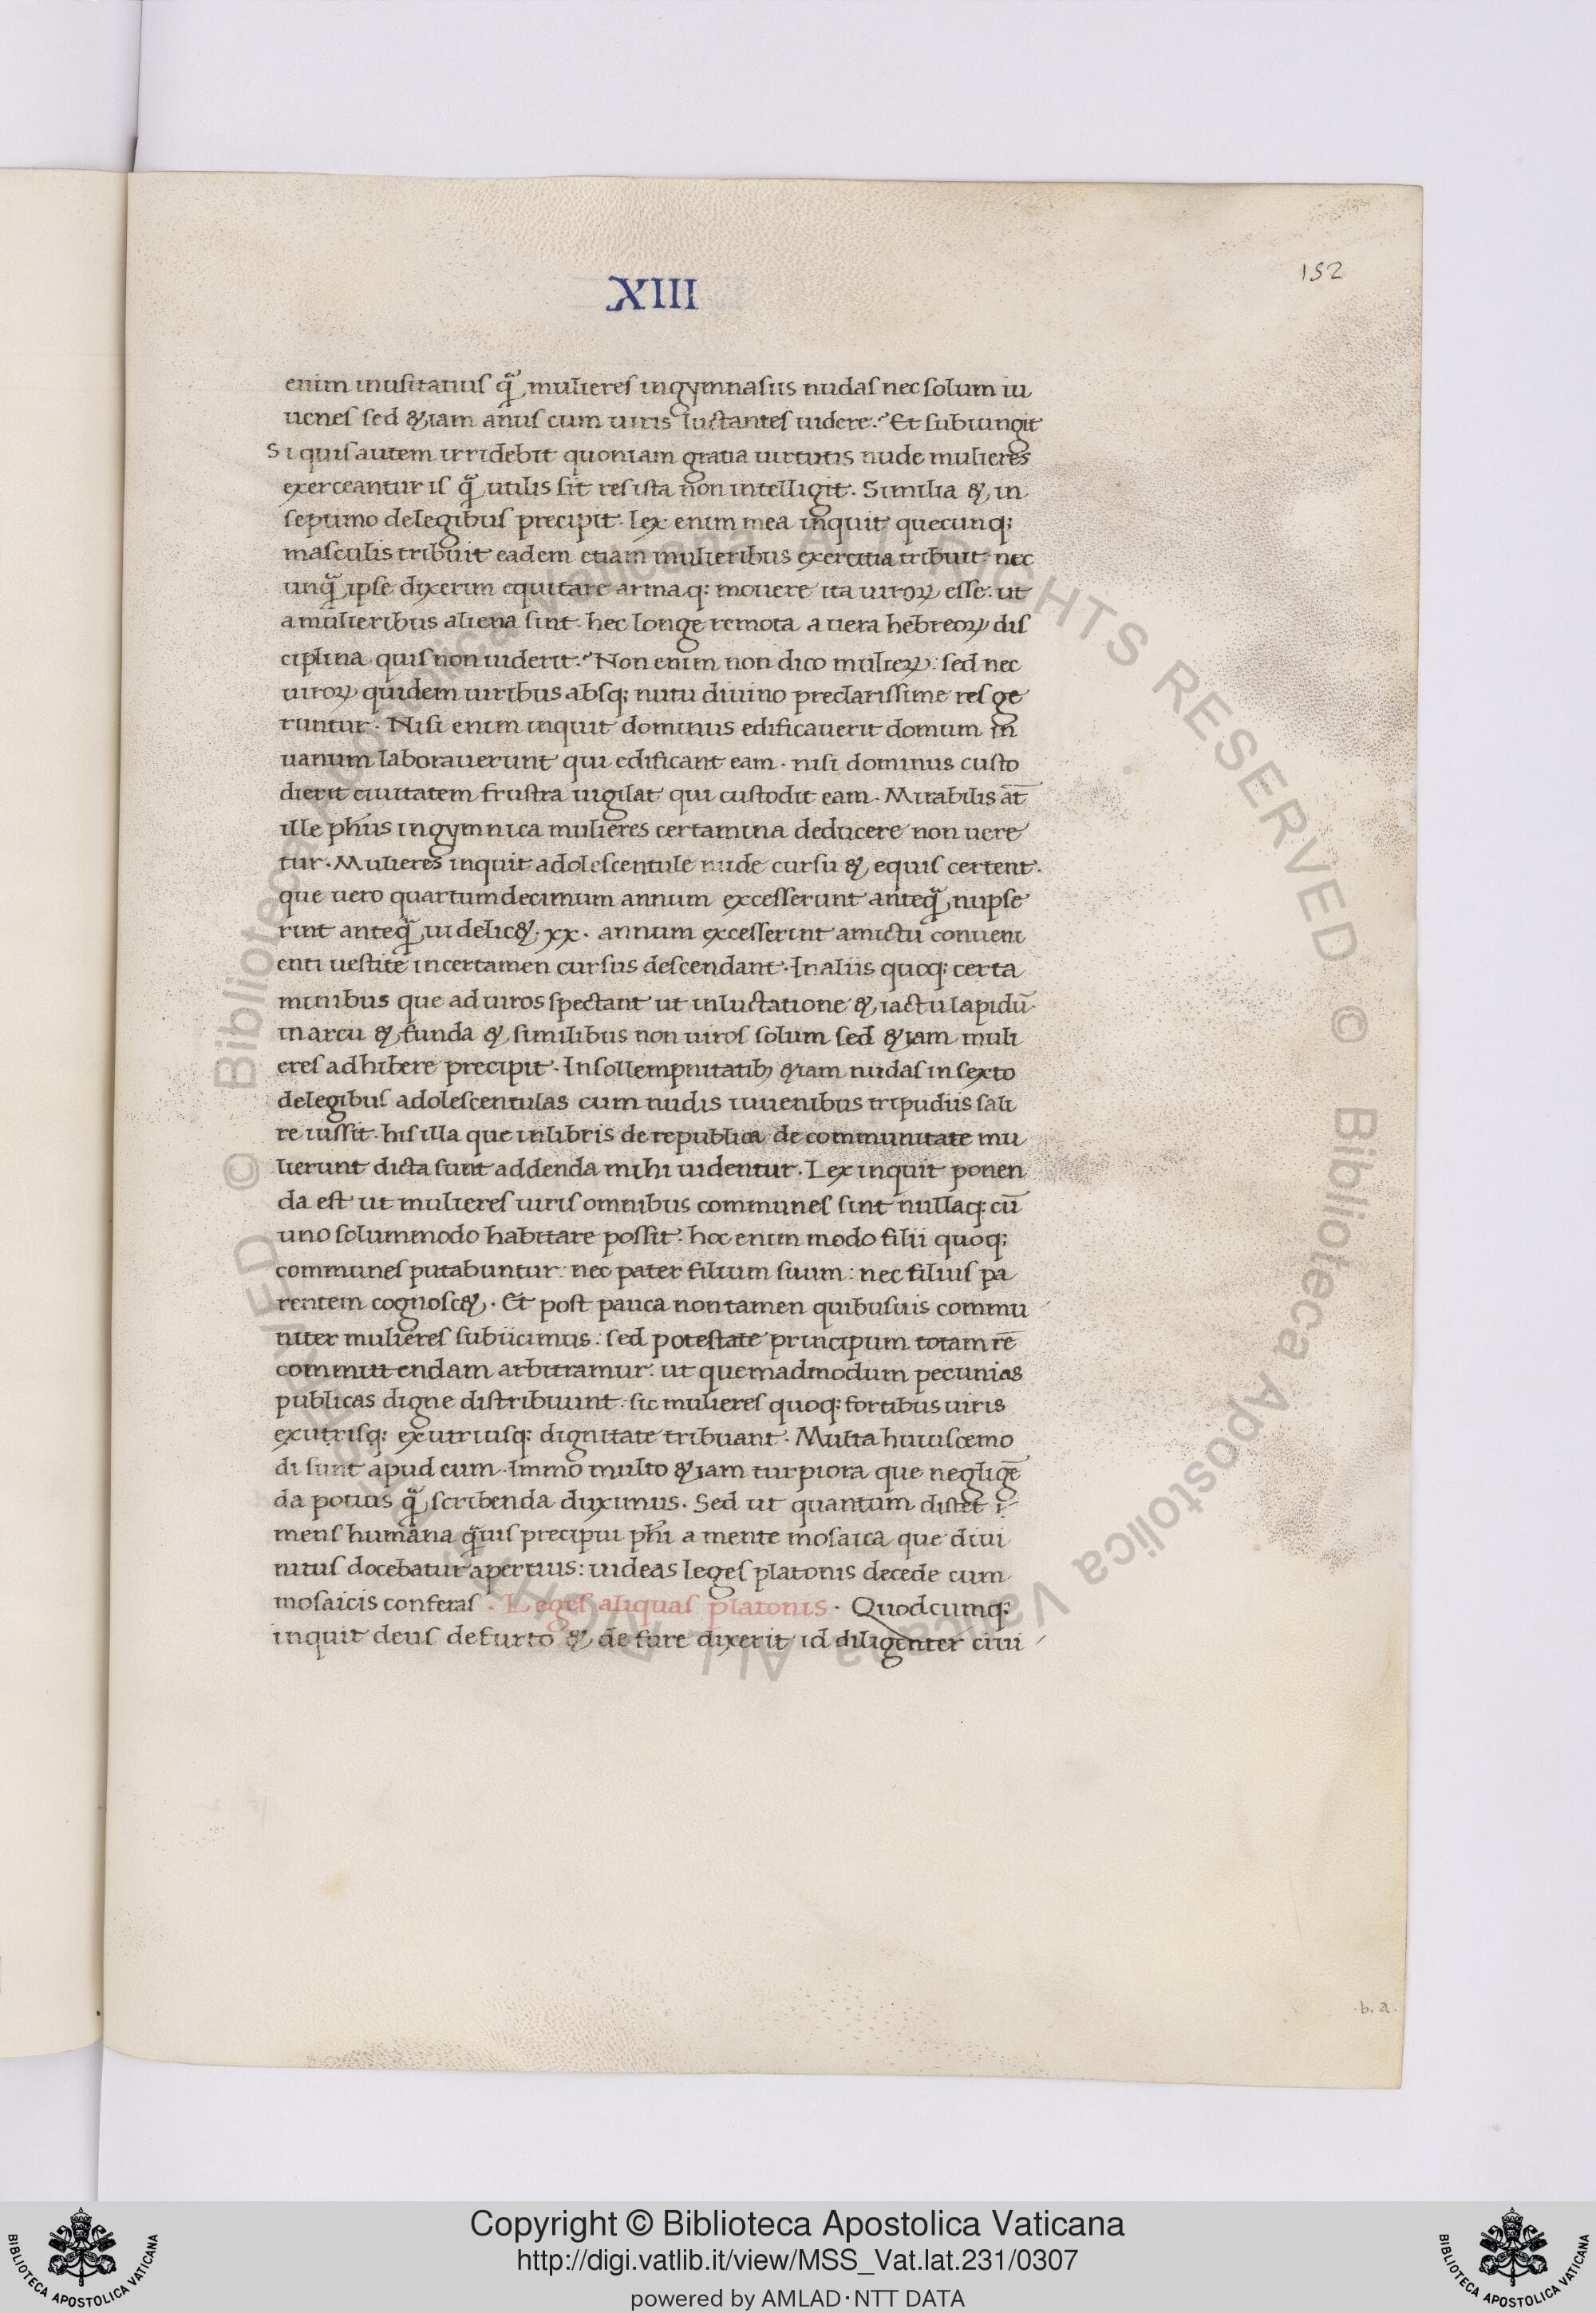 152
XIII
enim inusitatius q̃ mulieres in gymnasiis nudas nec solum iu
uenes sed &iam anus cum uiris luctantes uidere? Et subiungit
Si quis autem irridebit quoniam gratia uirtutis nude mulieres
exerceantur is q̃ utilis sit res ista non intelligit. Similia & in
septimo de legibus precipit. lex enim mea inquit quecunq;
masculis tribuit eadem etiam mulieribus exercitia tribuit. nec
unq̃ ipse dixerim equitare arma q; mouere ita uiroꝝ esse. ut
a mulieribus aliena sint. hec longe remota a uera hebreoꝝ dis
ciplina quis non uiderit? Non enim non dico mulieꝝ: sed nec
uiroꝝ quidem uiribus absq; nutu diuino preclarissime res ge
runtur. Nisi enim inquit dominus edificauerit domum in
uanum laborauerunt qui edificant eam. nisi dominus custo
dierit ciuitatem frustra uigilat qui custodit eam. Mirabilis at̄
ille ph̄us in gymnica mulieres certamina deducere non uere
tur. Mulieres inquit adolescentule nude cursu & equis certent.
que uero quartumdecimum annum excesserunt anteq̃ nupse
rint anteq̃ uidelic& .xx. annum excesserint amictu conueni
enti uestite in certamen cursus descendant. In aliis quoq; certa
minibus que ad uiros spectant ut in luctatione & iactu lapidū.
in arcu & funda & similibus non uiros solum sed &iam muli
eres adhibere precipit. In sollempnitatibꝫ &iam nudas in sexto
de legibus adolescentulas cum nudis iuuenibus tripudiis sali
re iussit. his illa que in libris de republica de communitate mu
lierunt dicta sunt addenda mihi uidentur. Lex inquit ponen
da est ut mulieres uiris omnibus communes sint nullaq; cū
uno solummodo habitare possit. hoc enim modo filii quoq;
communes putabuntur. nec pater filium suum: nec filius pa
rentem cognosc&. Et post pauca non tamen quibusuis commu
niter mulieres subiicimus: sed potestate principum totam rē
committendam arbitramur. ut quemadmodum pecunias
publicas digne distribuunt. sic mulieres quoq; fortibus uiris
ex utrisq; ex utriusq; dignitate tribuant. Multa huiuscemo
di sunt apud eum. Immo multo &iam turpiora que negligē
da potius q̃ scribenda duximus. Sed ut quantum distet i
mens humana q̃uis precipui ph̄i a mente mosaica que diui
nitus docebatur apertius: uideas leges platonis decede cum
mosaicis conferas. Leges aliquas platonis. Quodcumq;
inquit deus de furto & de fure dixerit id diligenter ciui
.b.a.
© Biblioteca Apostolica Vaticana ALL RIGHTS RESERVED © Biblioteca Apostolica Vaticana ALL RIGHTS RESERVED
Copyright © Biblioteca Apostolica Vaticana
http://digi.vatlib.it/view/MSS_Vat.lat.231/0307
powered by AMLAD·NTT DATA
BIBLIOTECA APOSTOLICA VATICANA
BIBLIOTECA APOSTOLICA VATICANA